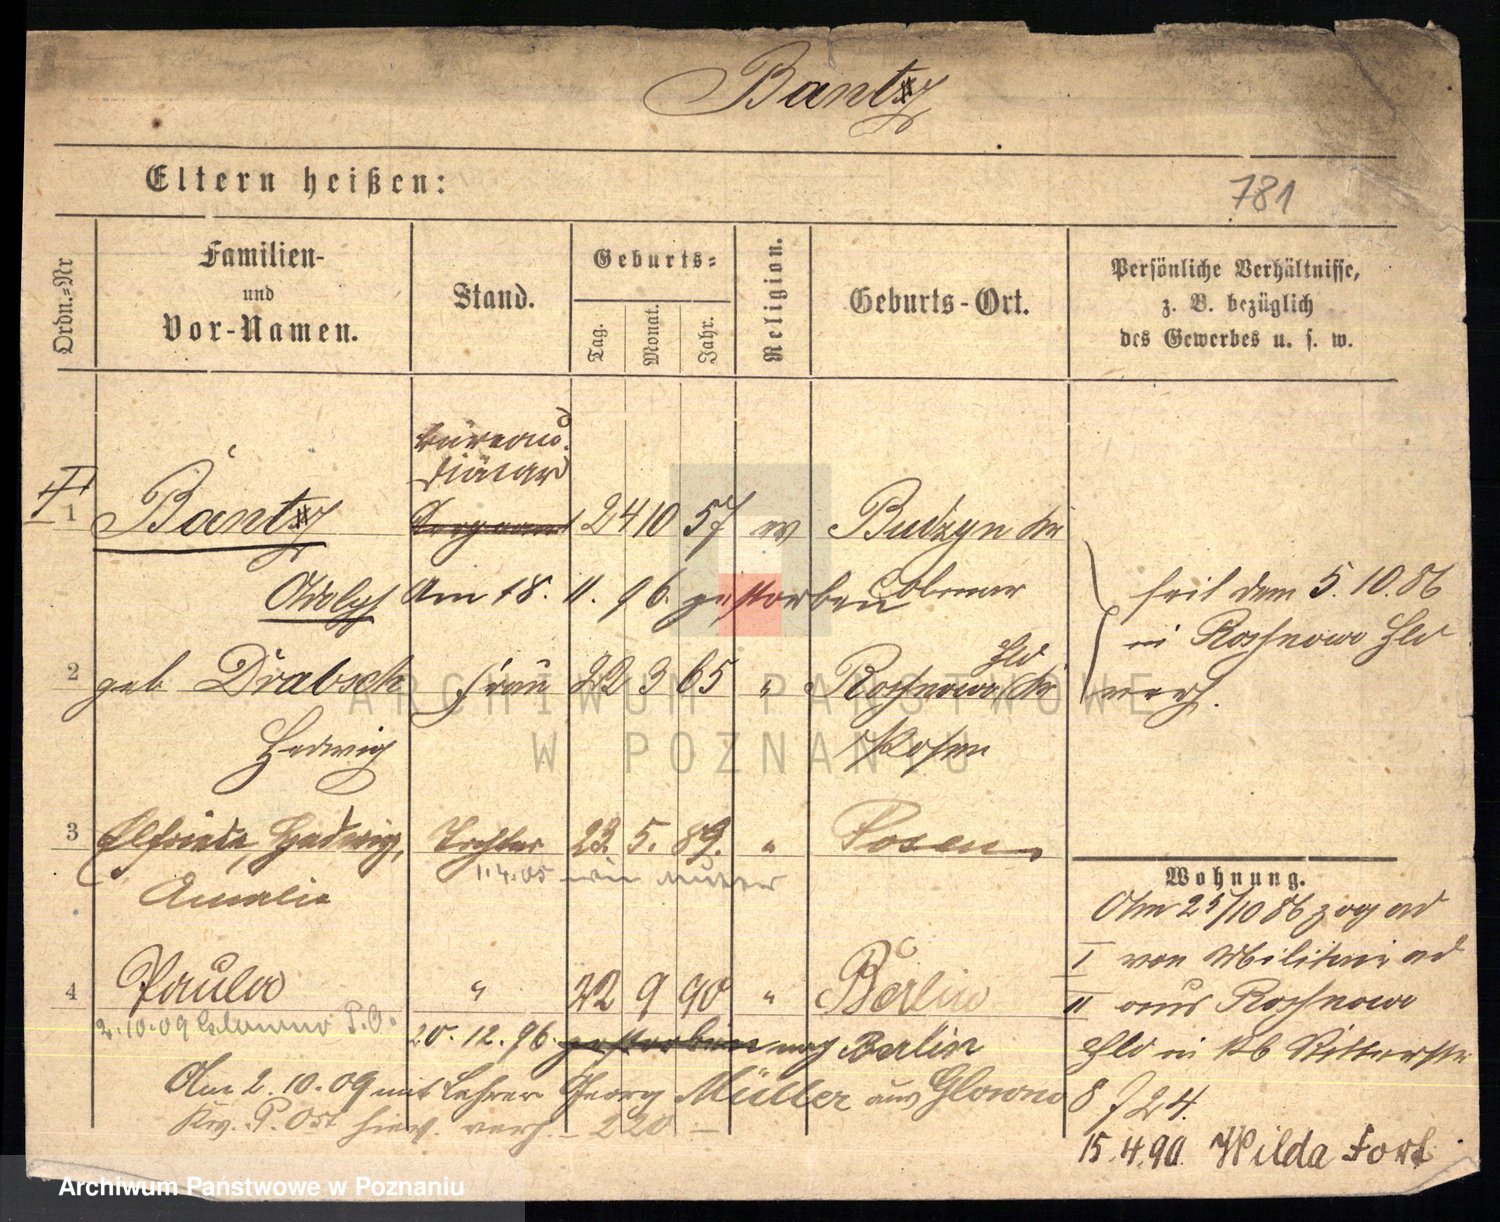 Bantz
Eltern heißen:
781
Ordn.-Nr
Familien-
und
Vor-Namen.
Stand.
Geburts-
Tag.
Monat.
Jahr.
Religion.
Geburts-Ort.
Persönliche Verhältnisse,
z. B. bezüglich
des Gewerbes u. s. w.
Büreaud.
diätar
1 Bantz 24 10 57 ev Budzyn Kr
Adolph Am 18. 11. 96 gestorben
seit dem 5.10.86
in Rosnowo Hld
verh.
2 geb Drabsch Frau 22 3 65 " Rosnowo Hld Kr
Hedwig Posen
3 Elfriede, Hedwig, Tochter 23. 5. 89. " Posen
1.4.05
Amalie
4 Paula " 22 9 90 " Berlin
2.10.09 Glowno P.O.
20.12.96 gestorben nach Berlin
Am 2.10.09 mit Lehrer Georg Müller aus Glowno
Kr. P. Ost hier verh. – 220 –
Wohnung.
Am 25/10 86 zog ad
I von Militair ad
II aus Rosnowo
Hld in Ritterstr
8 f 24.
15.4.90. Wilda Fort
ARCHIWUM PAŃSTWOWE
W POZNANIU
Archiwum Państwowe w Poznaniu